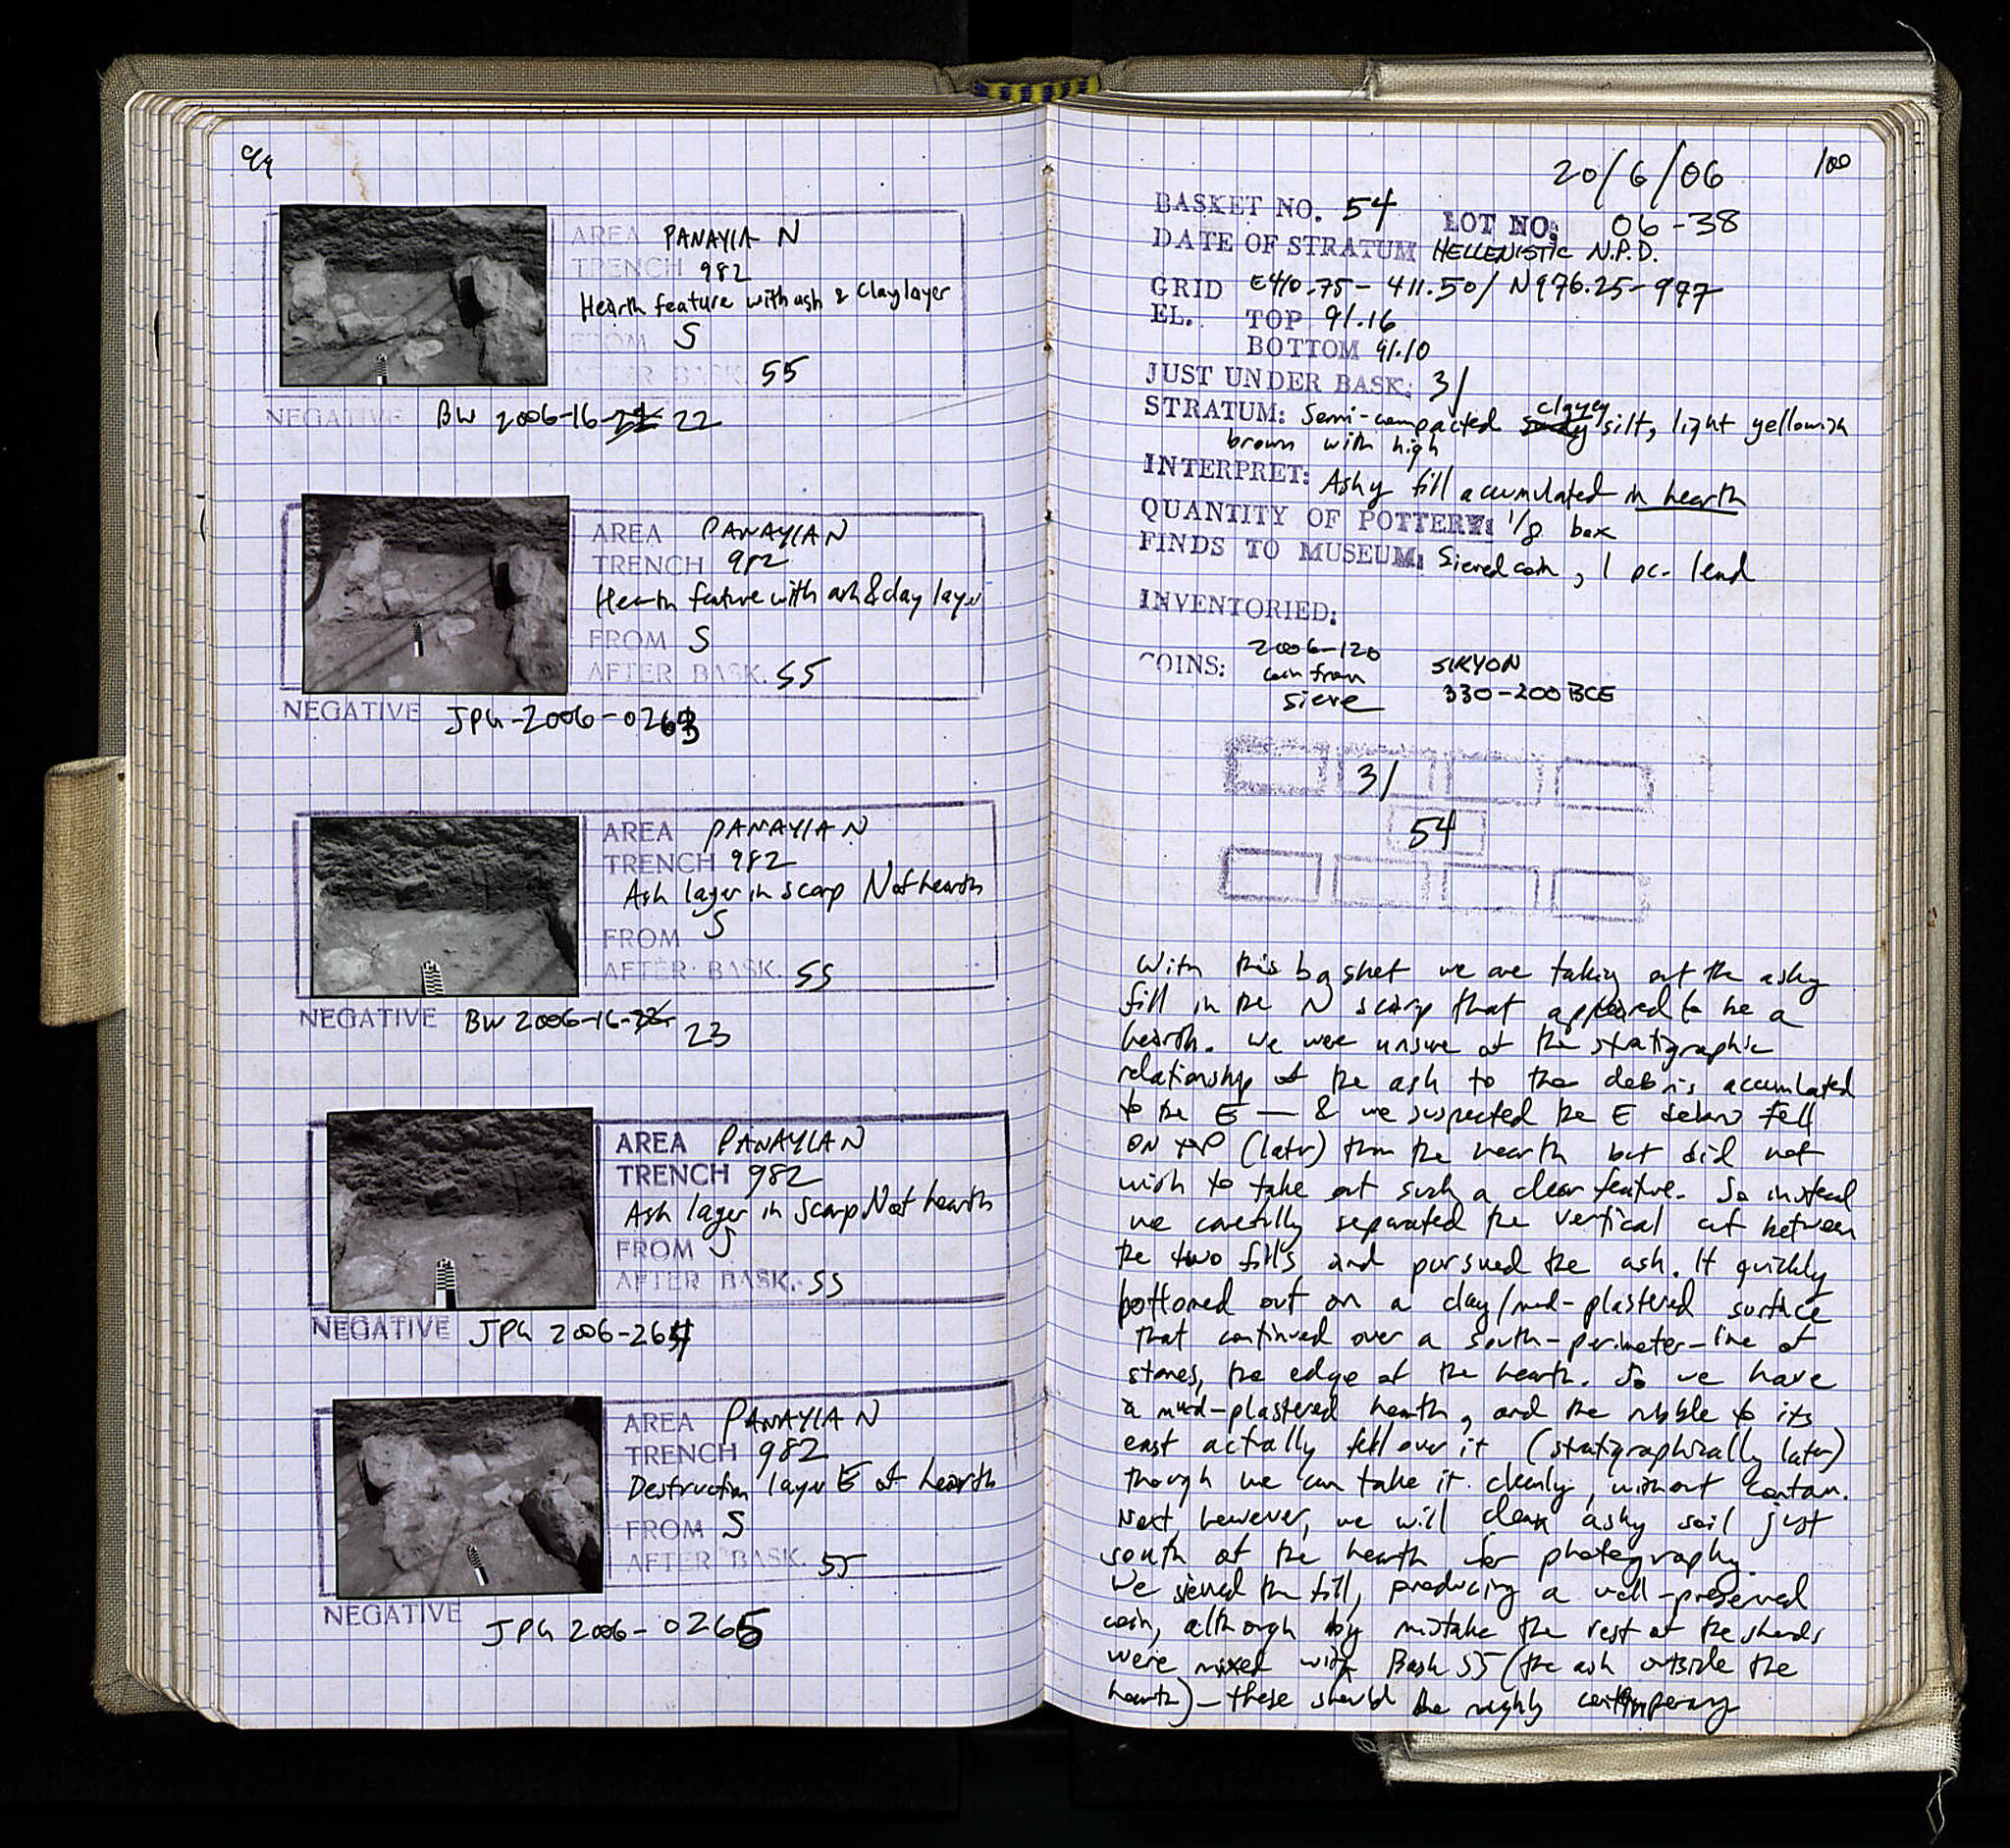 99
AREA PANAYIA N
TRENCH 982
Hearth feature with ash & Clay layer
FROM S
AFTER BASK. 55
NEGATIVE BW 2006-16-22
AREA PANAYIA N
TRENCH 982
Hearth feature with ash & clay layer
FROM S
AFTER BASK. 55
NEGATIVE JPG-2006-0263
AREA PANAYIA N
TRENCH 982
Ash layer in scarp N of hearth
FROM S
AFTER BASK. 55
NEGATIVE BW 2006-16-23
AREA PANAYIA N
TRENCH 982
Ash layer in scarp N of hearth
FROM S
AFTER BASK. 55
NEGATIVE JPG 2006-264
AREA PANAYIA N
TRENCH 982
Destruction layer E of hearth
FROM S
AFTER BASK. 55
NEGATIVE JPG 2006-0265
20/6/06 100
BASKET NO. 54 LOT NO: 06-38
DATE OF STRATUM HELLENISTIC N.P.D.
GRID E410.75-411.50/N976.25-977
EL. TOP 91.16
BOTTOM 91.10
JUST UNDER BASK: 31
STRATUM: Semi-compacted clayey silt, light yellowish
brown with high
INTERPRET: Ashy fill accumulated in hearth
QUANTITY OF POTTERY: 1/8 box
FINDS TO MUSEUM: Sieved coin, 1 pc. lead
INVENTORIED:
COINS: 2006-120 SIKYON
coin from 330-200 BCE
sieve
31
54
With this basket we are taking out the ashy
fill in the N scarp that appeared to be a
hearth. We were unsure of the stratigraphic
relationship of the ash to the debris accumulated
to the E — & we suspected the E debris fell
ON TOP (later) than the hearth but did not
wish to take out such a clear feature. So instead
we carefully separated the vertical cut between
the two fills and pursued the ash. It quickly
bottomed out on a clay/mud-plastered surface
that continued over a south-perimeter-line of
stones, the edge of the hearth. So we have
a mud-plastered hearth, and the rubble to its
east actually fell over it (stratigraphically later)
though we can take it cleanly, without contam.
Next, however, we will clean ashy soil just
south of the hearth for photography.
We sieved the fill, producing a well-preserved
coin, although by mistake the rest of the sherds
were mixed with Bask 55 (the ash outside the
hearth) — these should be roughly contemporary